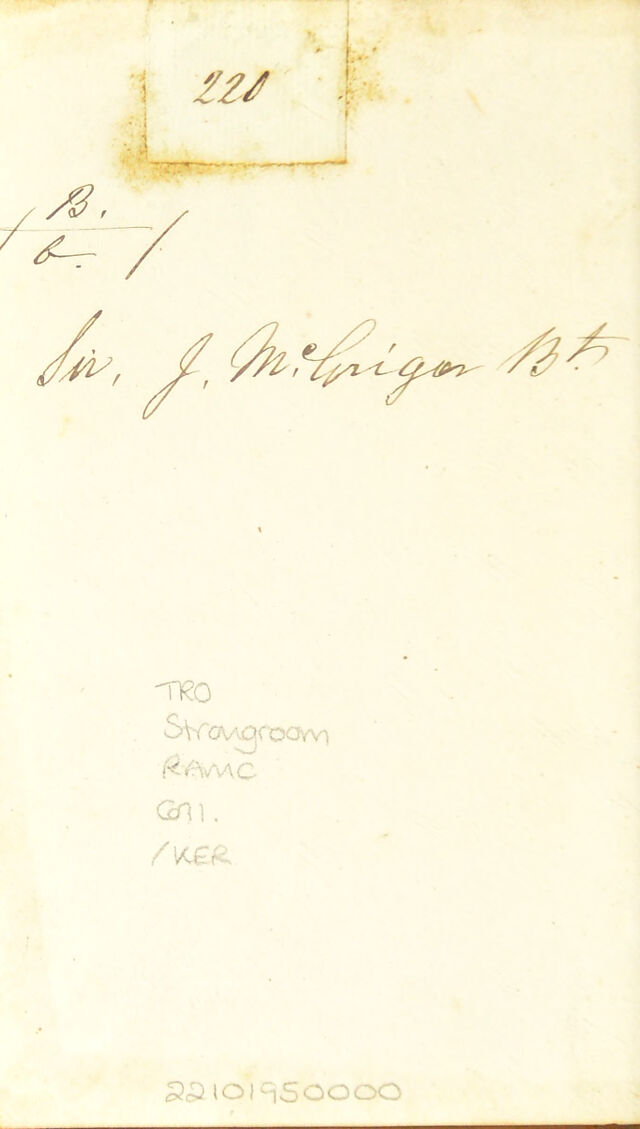 220
B.
6. /
Sir, J. McGrigor Bt.
TRO
Strongroom
RAMC
Coll.
/KER
22101950000